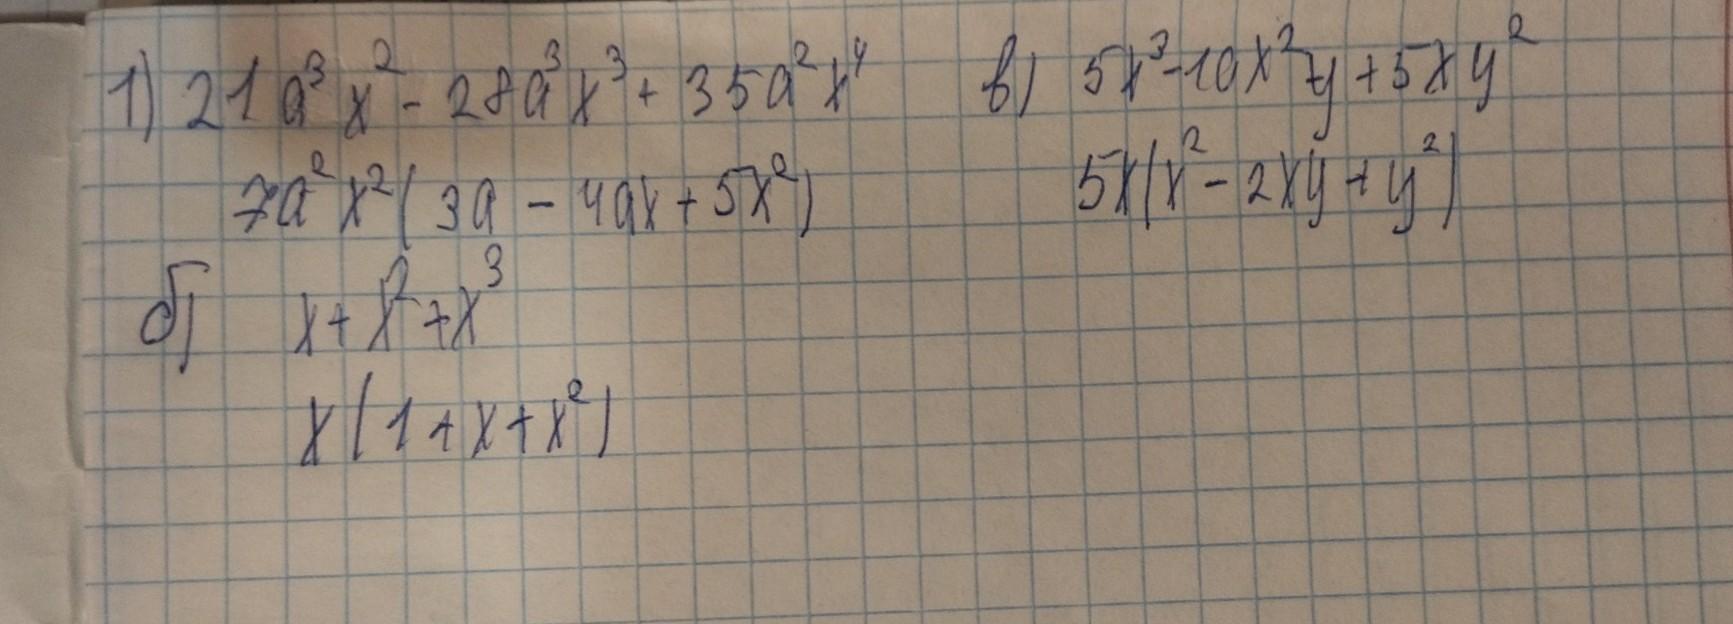 1) 21a³x² - 28a³x³ + 35a²x⁴
7a²x²(3a - 4ax + 5x²)
б) x + x² + x³
x(1 + x + x²)
в) 5x³ - 10x²y + 5xy²
5x(x² - 2xy + y²)